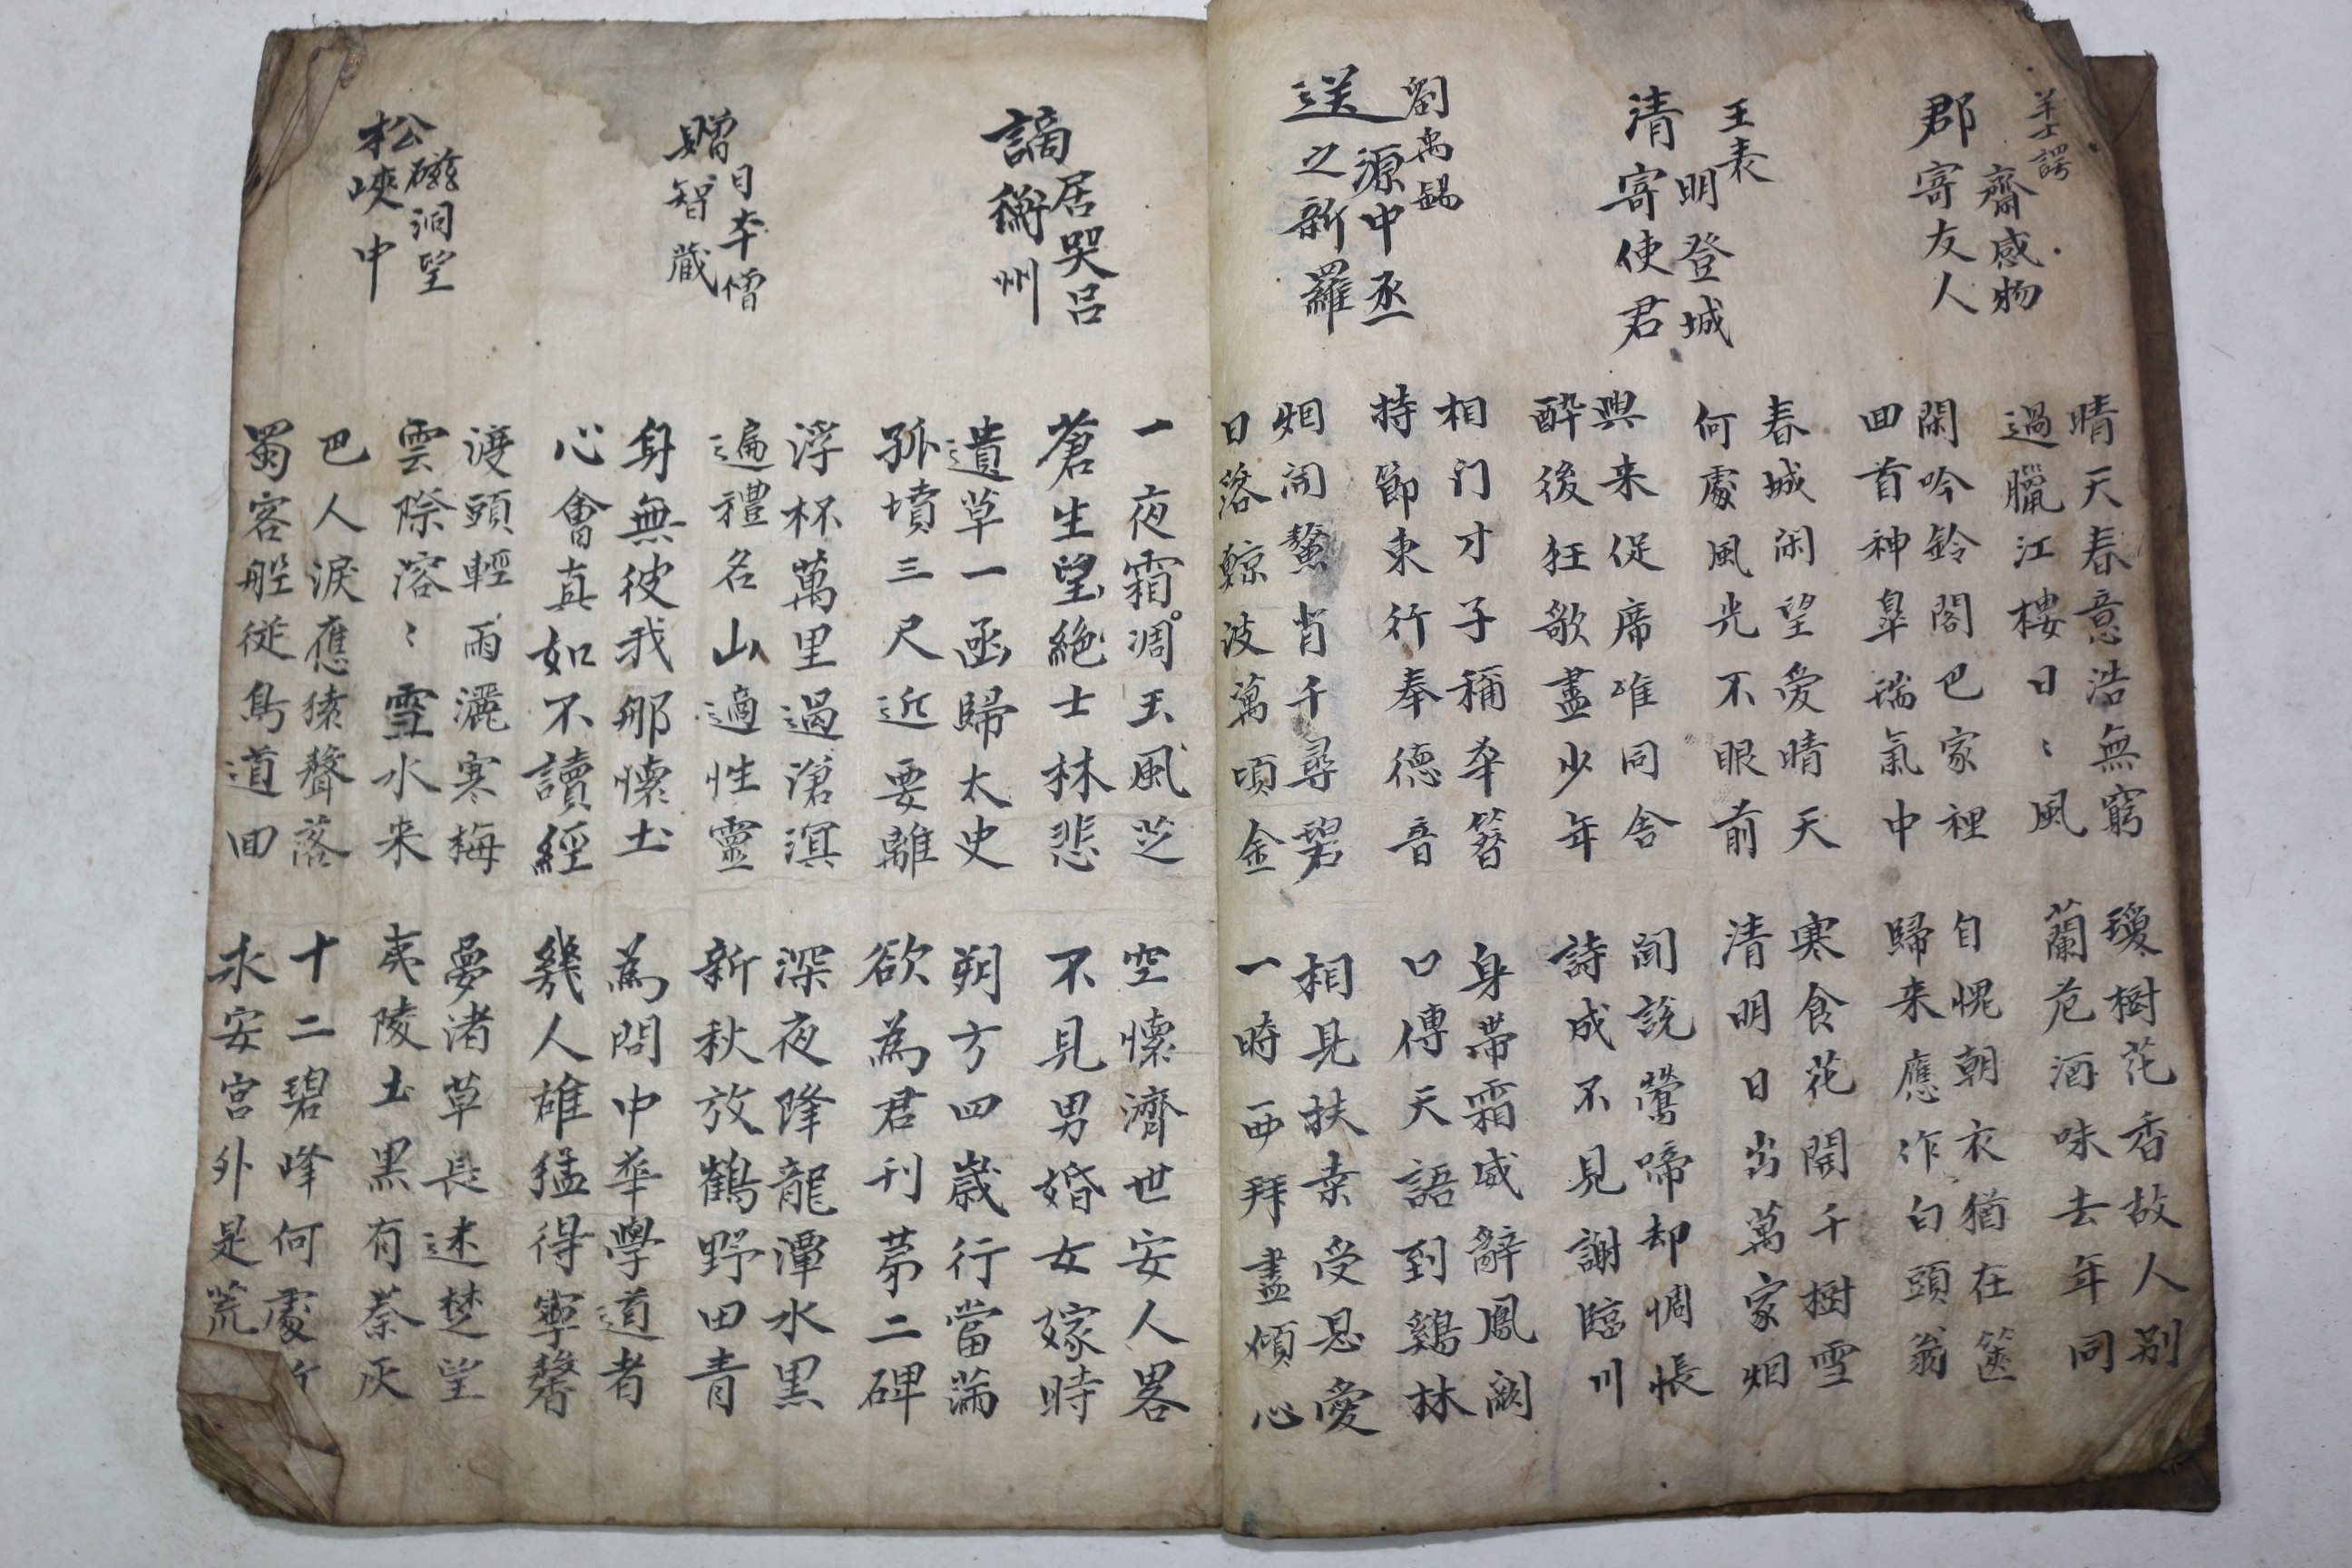 羊士諤
郡齋感物
寄友人
晴天春意浩無窮
過臘江樓日〻風
瓊樹花香故人別
蘭卮酒味去年同
閑吟鈴閣巴家裡
回首神皐瑞氣中
自愧朝衣猶在篋
歸来應作白頭翁
王表
清明登城
寄使君
春城闲望愛晴天
何處風光不眼前
寒食花開千樹雪
清明日出萬家烟
興来促席唯同舍
醉後狂歌盡少年
聞說鶯啼却惆悵
詩成不見謝臨川
劉禹錫
送源中丞
之新羅
相门才子稱夲簪
持節東行奉德音
身帶霜威辭鳳闕
口傳天語到鷄林
烟闹鰲背千尋碧
日落鯨波萬頃金
相見扶桒受恩愛
一時西拜盡傾心
謫居哭呂
衡州
一夜霜凋玉風芝
蒼生望絶士林悲
空懷濟世安人畧
不見男婚女嫁時
遺草一函歸太史
孤墳三尺近要離
朔方四歲行當滿
欲為君刊苐二碑
贈日夲僧
智藏
浮杯萬里過滄溟
遍禮名山適性靈
深夜降龍潭水黒
新秋放鶴野田青
身無彼我那懷土
心會真如不讀經
為問中華學道者
幾人雄猛得寧馨
松磁洞望
峽中
渡頭輕雨灑寒梅
雲際溶〻雪水来
夢渚草長迷楚望
夷陵土黒有秦灰
巴人淚應猿聲落
蜀客船從鳥道回
十二碧峰何處
永安宮外是荒